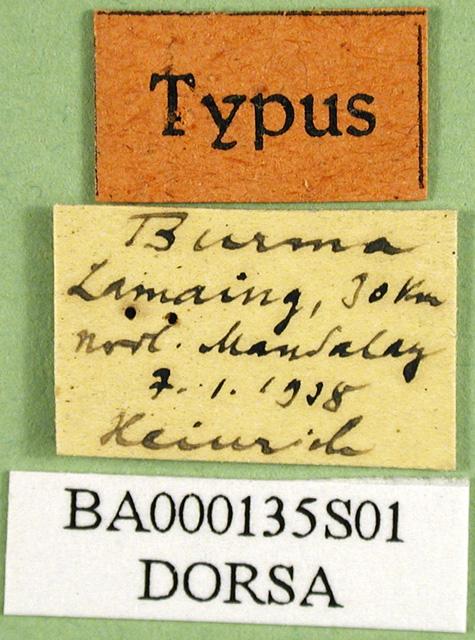 Typus
Burma
Lamaing, 30 Km
nördl. Mandalay
7. 1. 1938
Heinrich
BA000135S01
DORSA